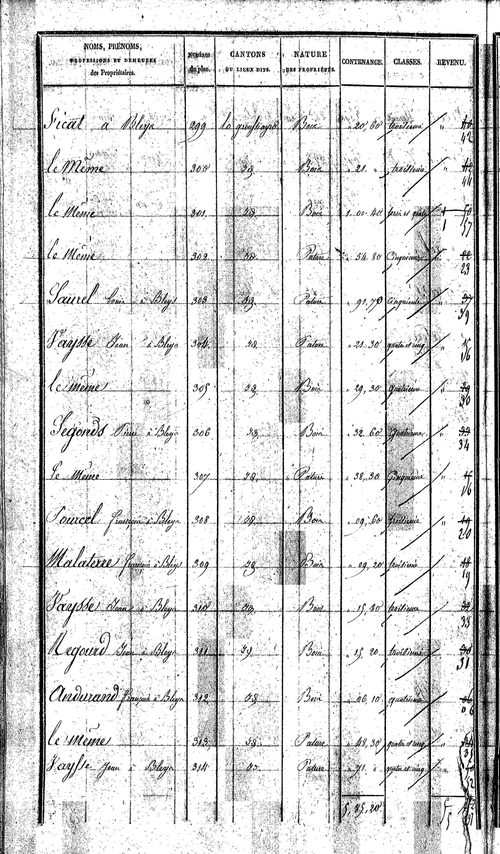 NOMS, PRÉNOMS, PROFESSIONS ET DEMEURES des Propriétaires. NUMÉROS du plan. CANTONS OU LIEUX DITS. NATURE DES PROPRIÉTÉS. CONTENANCE. CLASSES. REVENU.
Sicat à Bleys 299 Bois 20, 60 troisième 42
le Même 300 Bois 21 troisième 44
le Même 301 Bois 1. 00. 40 1 57
le Même 302 Pature 54. 80 Cinquième 23
Saurel Louis à Bleys 303 Pature 91, 70 Cinquième 39
Vaysse Jean à Bleys 304 Pature 21. 30 quatre et cinq 16
le même 305 Bois 29, 30 quatrième 30
Segonds Pierre à Bleys 306 Bois 32. 60 Quatrième 34
le même 307 Pature 38, 30 Cinquième 16
Pourcel françois à Bleys 308 Bois 09, 60 troisième 20
Malaterre françois à Bleys 309 Bois 09, 20 troisième 19
Vaysse Jean à Bleys 310 Bois 15, 80 troisième 33
Regourd Jean à Bleys 311 Bois 15, 20 troisième 31
Andurand françois à Bleys 312 Bois 06, 10 quatrième 06
le même 313 Pature 48, 30 quatre et cinq
Vaysse Jean à Bleys 314 Pature 71 quatre et cinq